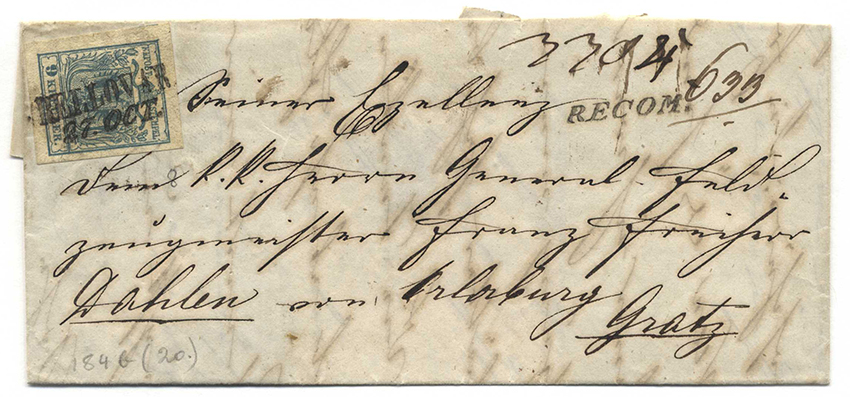 BELLOVÁR
27. OCT.
3304
RECOM. 633
Seiner Exzellenz
Dem k. k. Herrn General-Feld-
zeugmeister Franz Freiherr
Dahlen von Orlaburg
Gratz